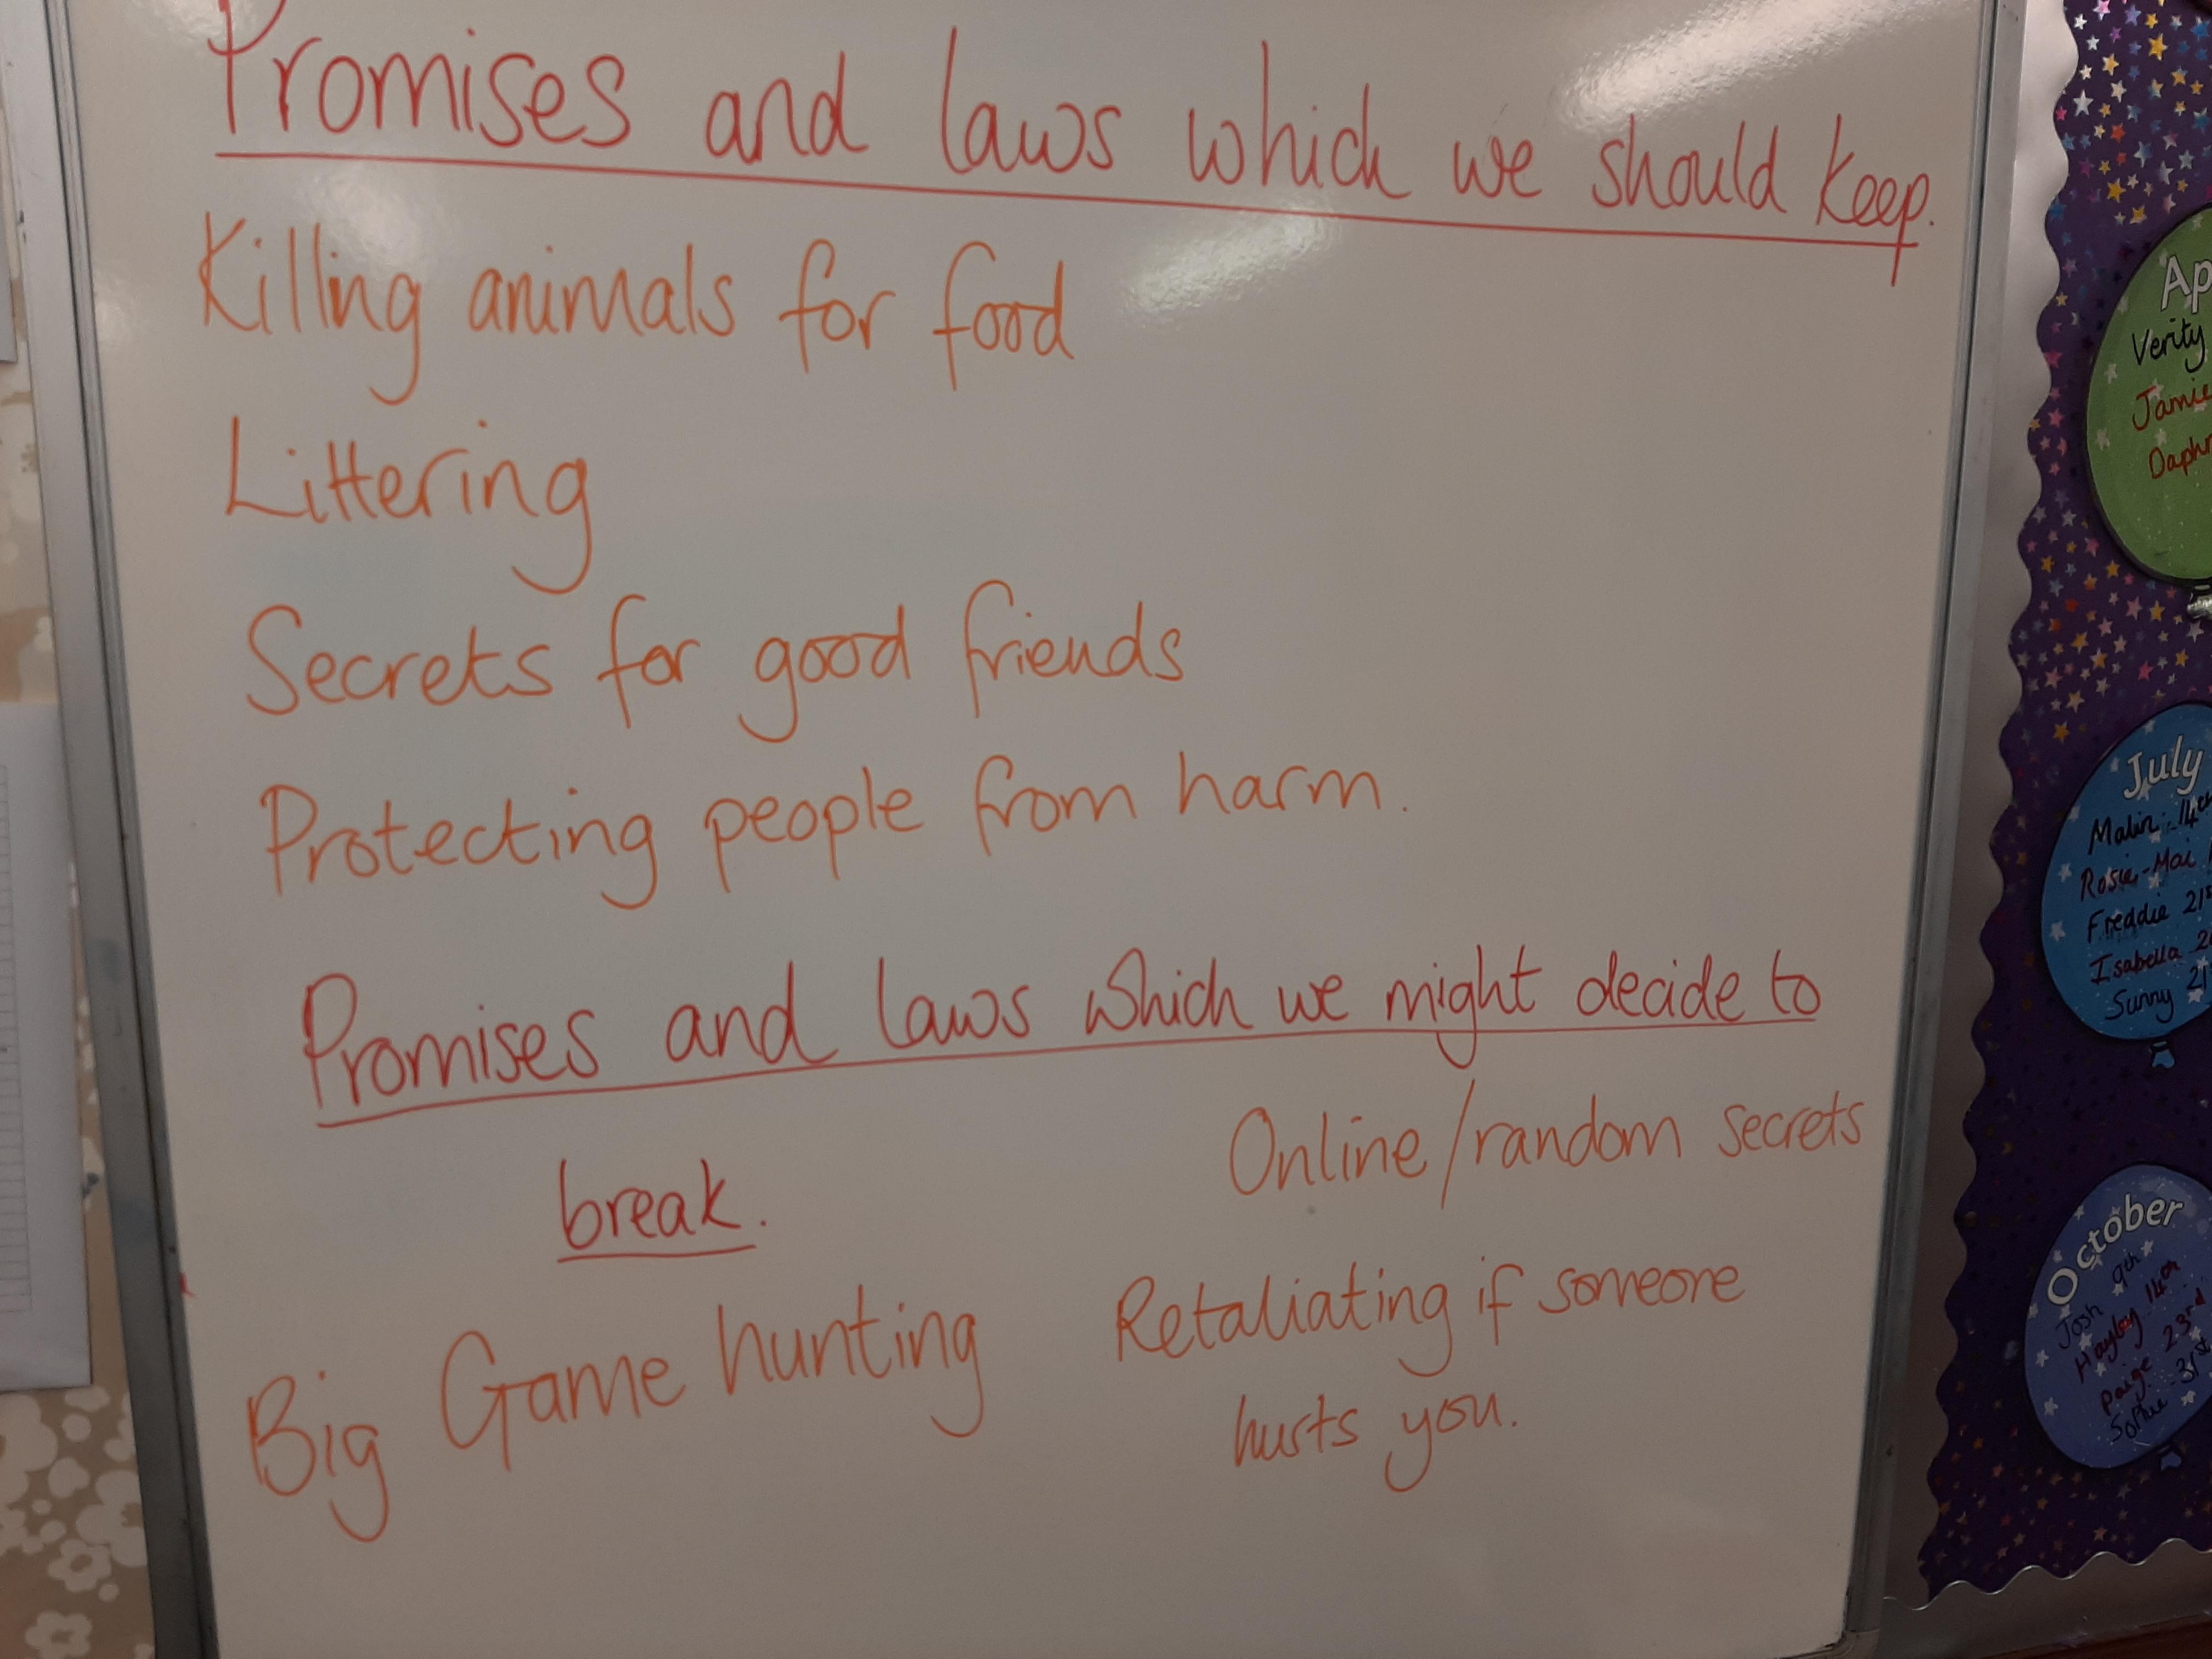 Promises and laws which we should keep.
Killing animals for food
Littering
Secrets for good friends
Protecting people from harm.
Promises and laws which we might decide to
break.
Big Game hunting
Online/random secrets
Retaliating if someone
hurts you.
Verity
Jamie
July
Malin
Rosie-Mai
Freddie 21st
Isabella
Sunny 21
October
Josh 9th
Hayley 14th
Paige 23rd
31st